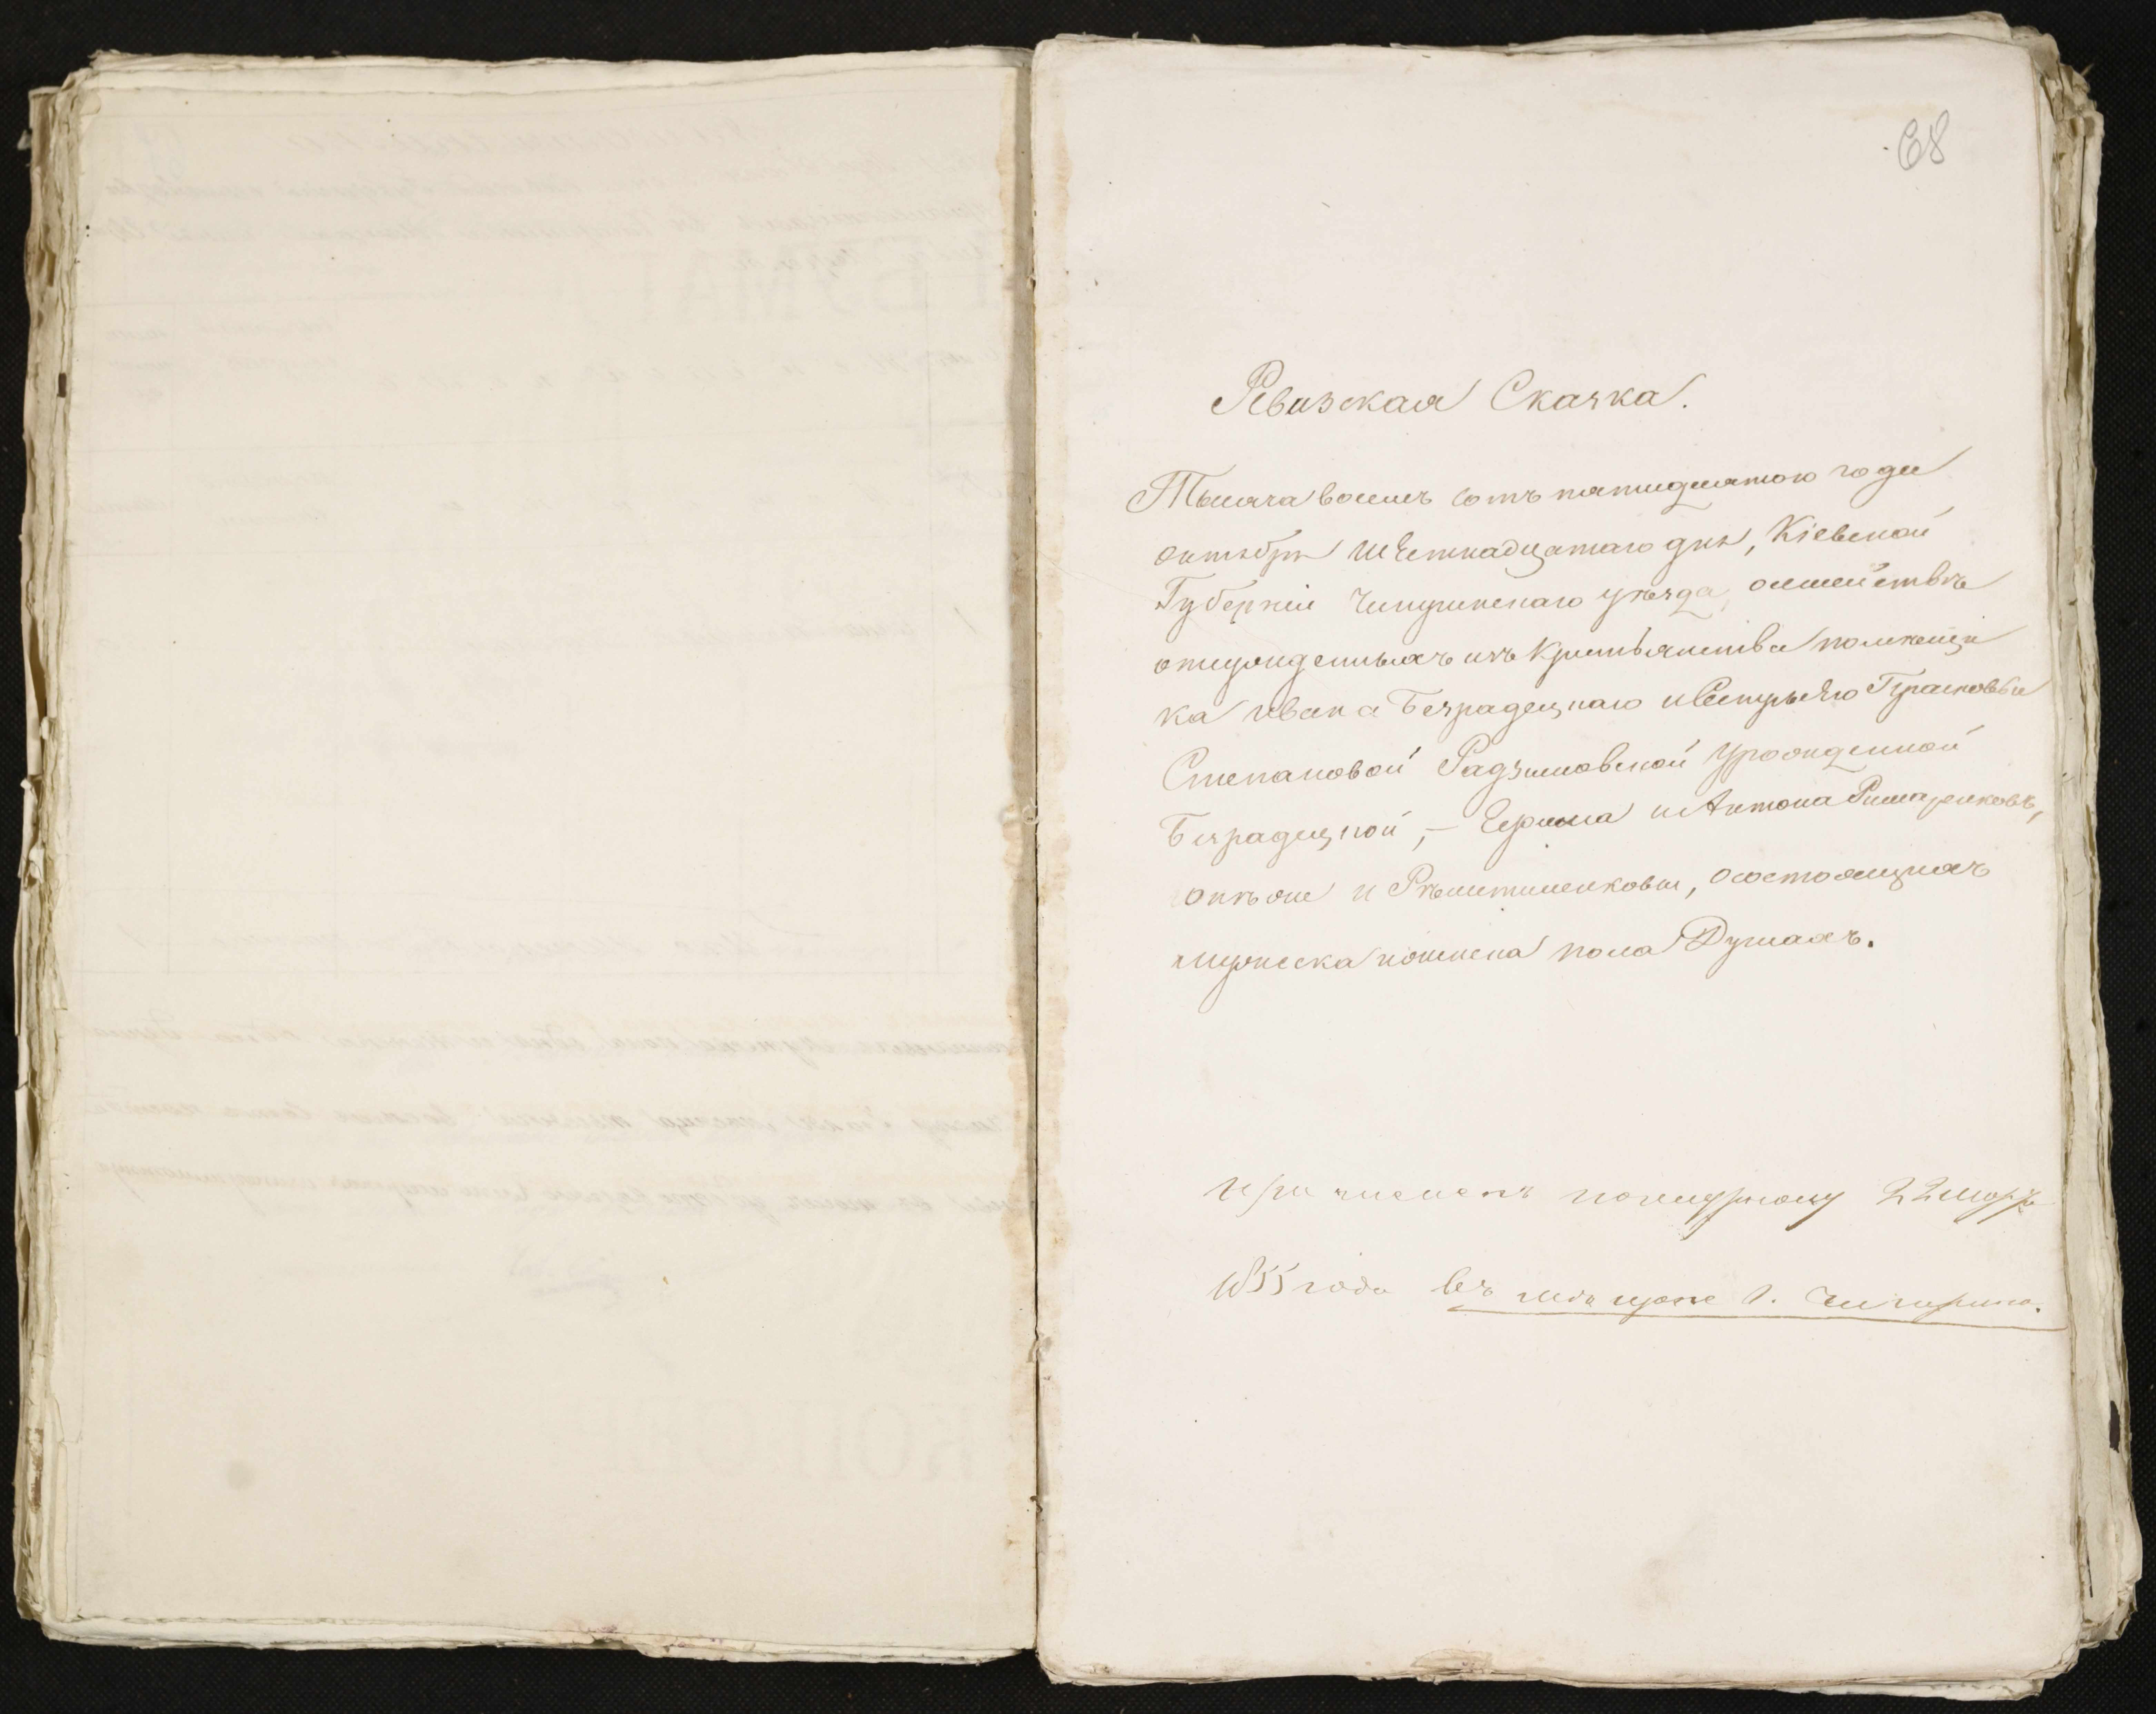 68
Ревизская Скачка.
Тысяча восемь сотъ пятидесятого года
октября шестнадцатаго дня, Кіевской
Губерніи Чигиринскаго уѣзда, осемействѣ
отчужденныхъ изъ крестьянства помѣщи
ка Ивана Безрадецкаго и Сестры его Прасковьи
Степановой Радзимовской урожденной
Безрадецкой, — Ефима и Антона Римаренковъ,
онъ же и Рѣшетиленковы, осостоящихъ
мужеска и женска пола Душахъ.
Причисленъ по 22 марта
1855 года въ мѣщане г. Чигирина.